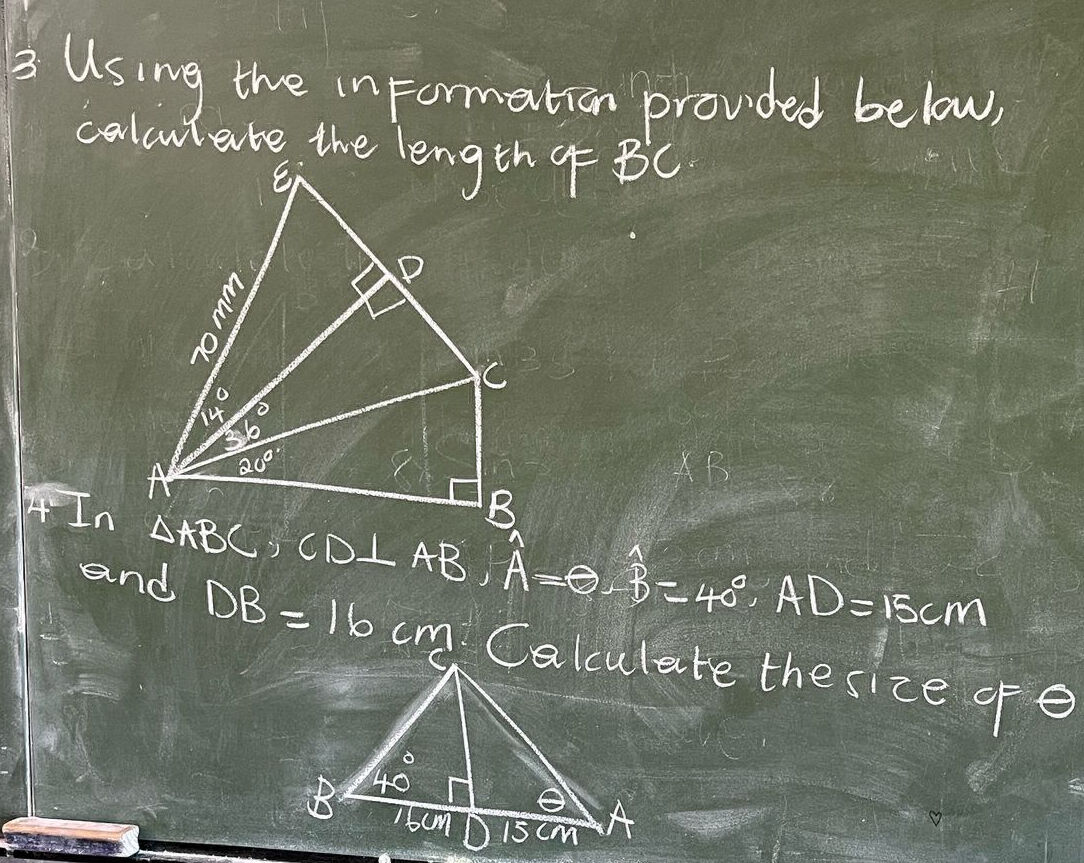 3 Using the information provided below,
calculate the length of BC.
E
D
70 mm
C
14°
36°
20°
A
B
4 In ΔABC, CD⊥AB, Â=θ, B̂=40°, AD=15cm
and DB = 16 cm. Calculate the size of θ
C
40°
B
θ
A
16cm D 15cm